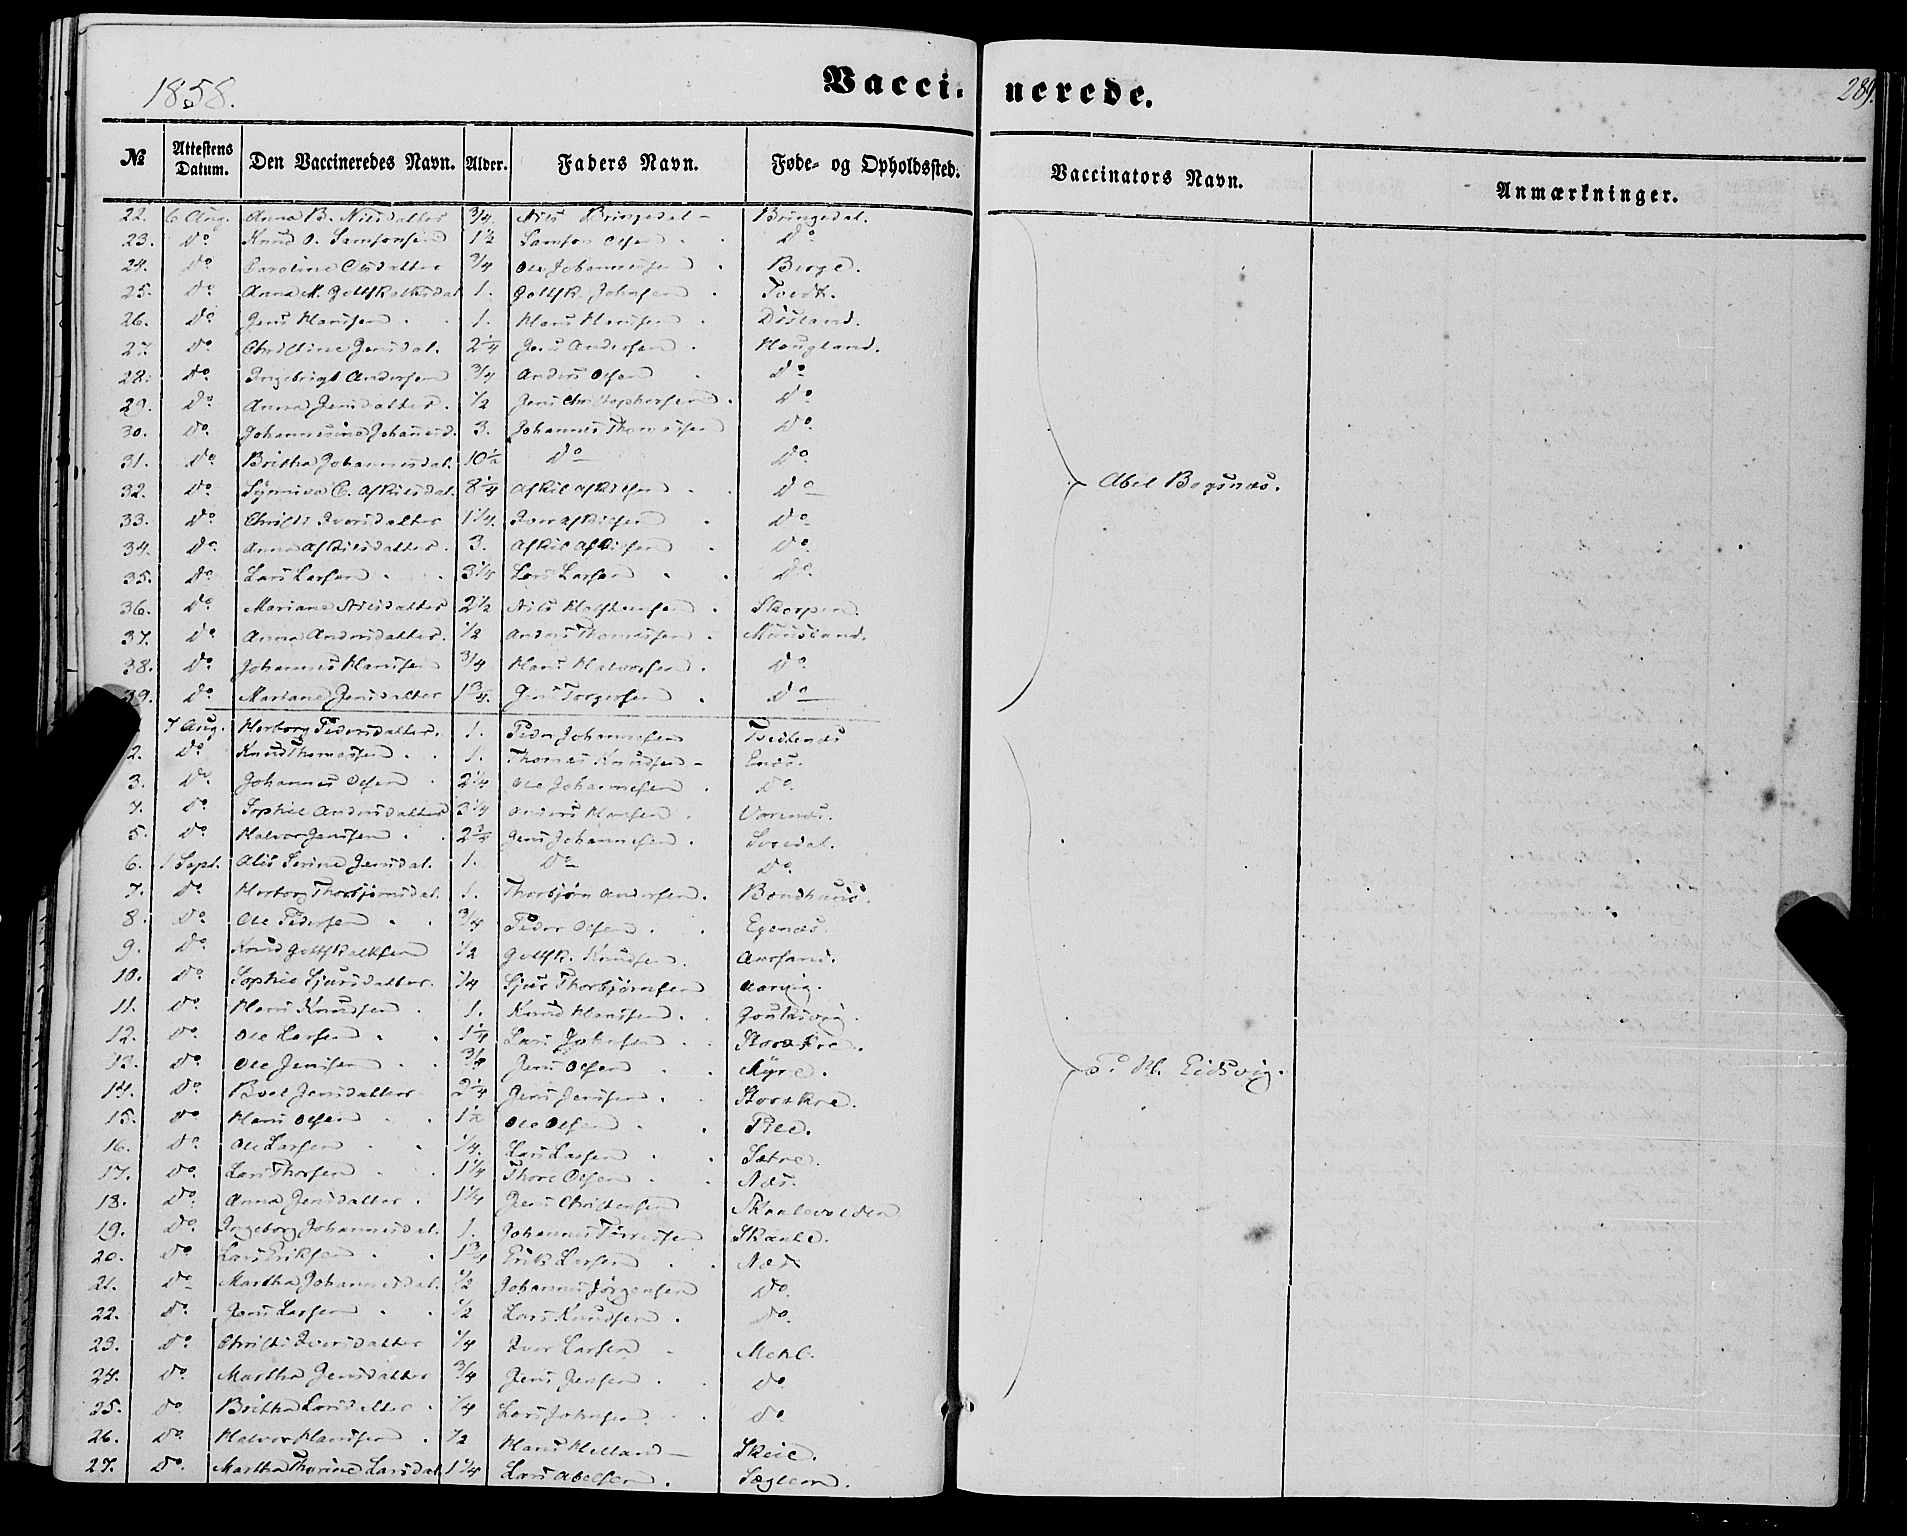 1858.
Vaccinerede.
289.
№ Attestens Datum. Den Vaccineredes Navn. Alder. Faders Navn. Føde- og Opholdssted. Vaccinators Navn. Anmærkninger.
22. 6 Aug. Anna B. Nilsdatter 3/4. Nils Bringedal - Bringedal.
23. Do Knud O. Samsonsen 1 1/2 Samson Olsen Do
24. Do Caroline Olsdatter 3/4 Ole Johannessen Berge.
25. Do Anna M. Gotskalksdat. 1. Gotsk. Johnsen Tvedt.
26. Do Jens Hansen 1. Hans Hansen
27. Do Christine Jensdat. 2 1/4 Jens Andersen Haugland.
28. Do Ingebrigt Andersen 3/4 Anders Olsen Do
29. Do Anna Jensdatter. 1/2 Jens Christophersen Do
30. Do Johannesine Johannesd. 3. Johannes Thomassen Do
31. Do Britha Johannesdat. 10 1/2 Do Do
32. Do Synniva C. Askilsdat. 8 1/4 Askil Askilsen Do
33. Do Christi Iversdatter 1 1/4. Iver Askilsen Do
34. Do Anna Askilsdatter. 3. Askil Askilsen Do
35. Do Lars Larsen 3 1/4 Lars Larsen Do
36. Do Mariane Nilsdatter 2 1/2 Nils Skorpen.
37. Do Anna Andersdatter. 1/2 Anders Thomassen Muusland.
38. Do Johannes Hansen 3/4 Hans Halvorsen. Do
39. Do Mariane Jensdatter 1 3/4. Jens Torgersen Do
Abel Bogsnæs.
7 Aug. Herborg Pedersdatter. 1. Peder Johannessen
2. Do Knud Thomassen 1. Thomas Knudsen - Enæs.
3. Do Johannes Olsen 2 1/4 Ole Johannesen Do
7. Do Sophie Andersdatter 3 1/4 Anders Hansen
5. Do Halvor Jensen 2 3/4 Jens Johannesen
6. 1 Sept. Alis Serine Jensdat. 1. Do Do
7. Do Herborg Thorbjørnsdat. 1. Thorbjørn Andersen. Bondhuus.
8. Do Ole Pedersen 3/4 Peder Olsen Egenæs.
9. Do Knud Gotskalksen 1/2 Gotsk. Knudsen. Aarsand.
10. Do Sophie Sjursdatter. 1/4 Sjur Thorbjørnsen Aarvig.
11. Do Hans Knudsen 1. Knud Hansen.
12. Do Ole Larsen 1 1/4 Lars Johnsen
13. Do Ole Jensen 3/4 Jens Olsen Myre.
14. Do Boel Jensdatter 2 1/4 Jens Jensen
15. Do Hans Olsen 1 1/2 Ole Olsen
16. Do Ole Larsen 1/4. Lars Larsen Sætre.
17. Do Lars Thorsen 1 1/4 Thore Olsen Næs.
18. Do Anna Jensdatter 1 1/4 Jens Christensen
19. Do Ingeborg Johannesdat. 1. Johannes Skaale.
20. Do Lars Eriksen 1 3/4 Erik Larsen Næs
21. Do Martha Johannesdat. 1/2 Johannes Jørgensen Do
22. Do Jens Larsen 1/2 Lars Knudsen. Do
23. Do Christi Iversdatter 1/4 Iver Larsen Mehl.
24. Do Martha Jensdatter 3/4 Jens Jensen Do
25. Do Britha Larsdatter 1/4 Lars Johnsen Do
26. Do Halvor Hansen 1/2 Hans Helland - Skeie.
27. Do Martha Thorine Larsdat. 1 1/4 Lars Abelsen.
P. H. Eidsvig.